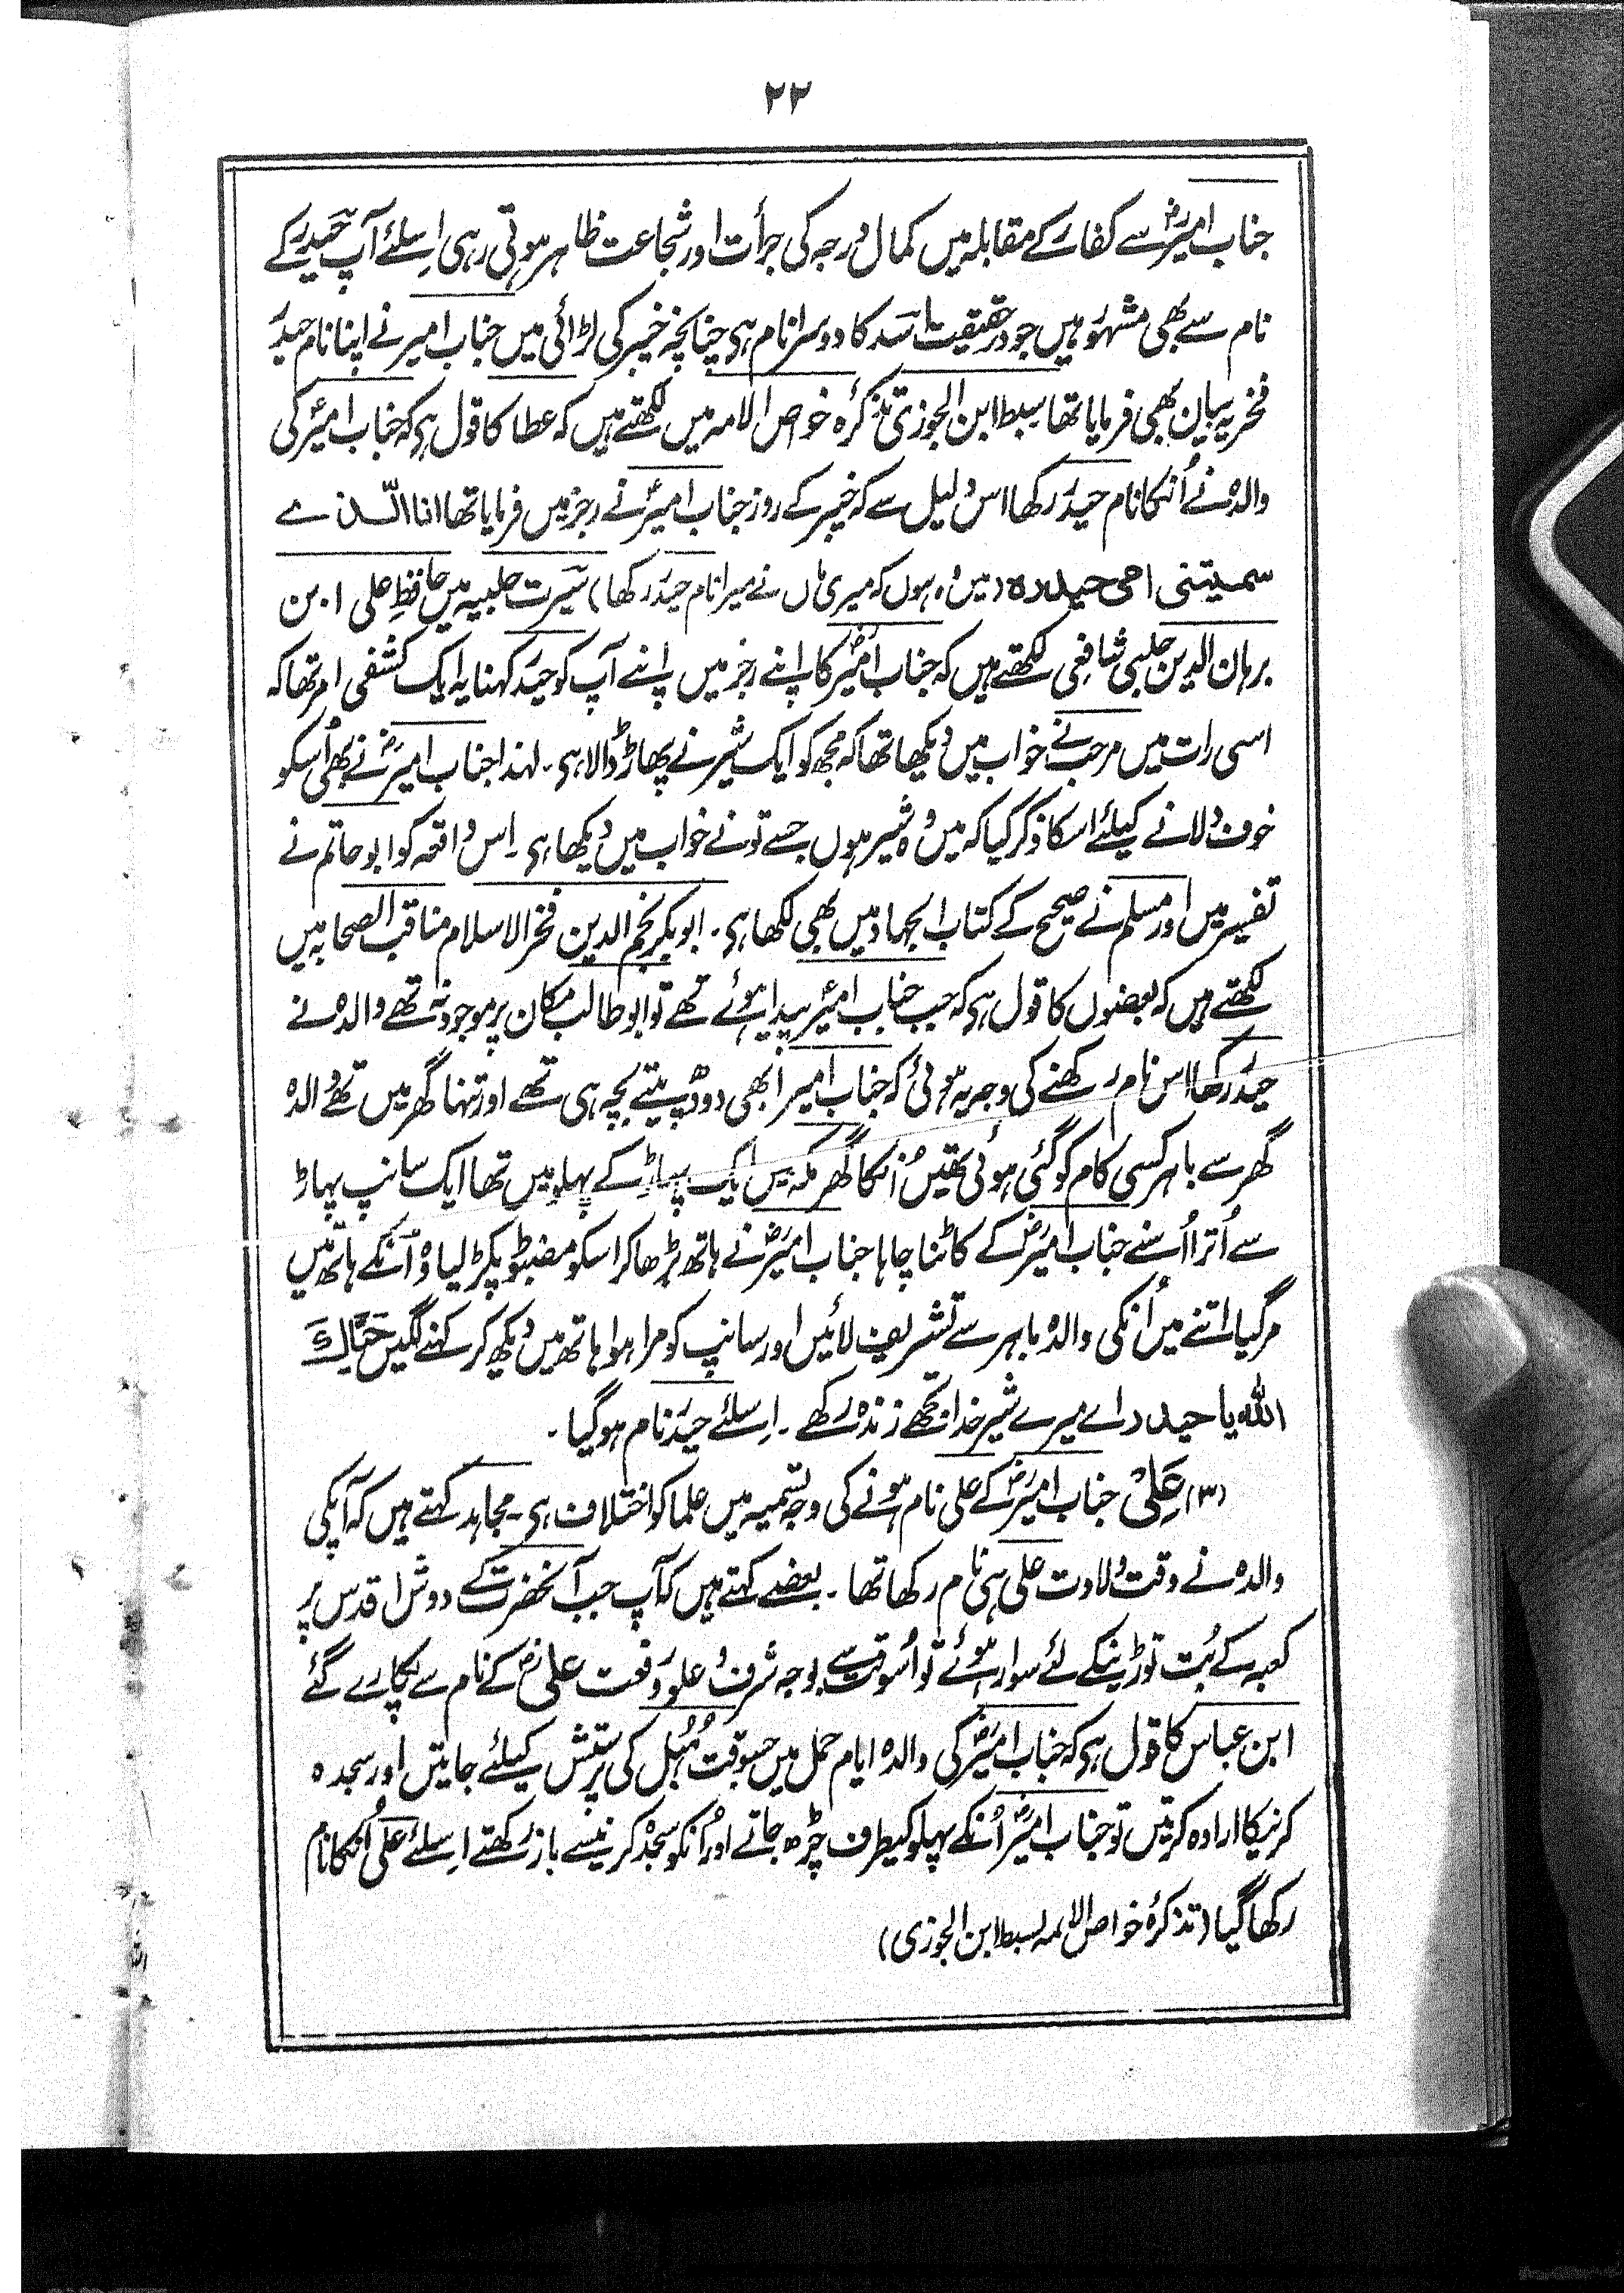 ۲۲
جناب امیرؓ سے کفار کے مقابلہ میں کمال درجہ کی جرأت اور شجاعت ظاہر ہوتی رہی اِسلئے آپ حَیدر کے
نام سے بھی مشہور ہیں جو درحقیقت اسَد کا دوسرا نام ہی چنانچہ خیبر کی لڑائی میں جناب امیر نے اپنا نام حیدر
فخریہ بیان بھی فرمایا تھا سبط ابن الجوزی تذکرۂ خواص الامہ میں لکھتے ہیں کہ عطا کا قول ہی کہ جناب امیرؓ کی
والدہ نے اُنکا نام حیدر رکھا اس دلیل سے کہ خیبر کے روز جناب امیرؓ نے رجز میں فرمایا تھا انا الّذے
سمیتنی امی حیدرہ (میں وہ ہوں کہ میری ماں نے میرا نام حیدر رکھا) سَیرت حلبیہ میں حافظ علی ابن
برہان الدین حلبی شافعی لکھتے ہیں کہ جناب امیرؓ کا اپنے رجز میں اپنے آپ کو حیدر کہنا یہ ایک کشفی امر تھا کہ
اسی رات میں مرحب نے خواب میں دیکھا تھا کہ مجھ کو ایک شیر نے پھاڑ ڈالا ہی۔ لہذا جناب امیرؓ نے بھی اُسکو
خوف دلانے کیلئے اسکا ذکر کیا کہ میں وہ شیر ہوں جسے تو نے خواب میں دیکھا ہی۔ اِس واقعہ کو ابو حاتم نے
تفسیر میں اور مسلم نے صحیح کے کتاب الجہاد میں بھی لکھا ہی۔ ابوبکر نجم الدین فخر الاسلام مناقب الصحابہ میں
لکھتے ہیں کہ بعضوں کا قول ہی کہ جب جناب امیرؓ پیدا ہوئے تھے تو ابو طالب مکان پر موجود نہ تھے والدہ نے
حیدر رکھا اس نام رکھنے کی وجہ یہ ہوئی کہ جناب امیر ابھی دودھ پیتے بچہ ہی تھے اور تنہا گھر میں تھے والدہ
گھر سے باہر کسی کام کو گئی ہوئی تھیں اُنکا گھر مکہ میں ایک پہاڑ کے پہلو میں تھا ایک سانپ پہاڑ
سے اُترا اُسنے جناب امیرؓ کے کاٹنا چاہا جناب امیرؓ نے ہاتھ بڑھا کر اسکو مضبوط پکڑ لیا وہ اُنکے ہاتھ میں
مر گیا اتنے میں اُنکی والدہ باہر سے تشریف لائیں اور سانپ کو مرا ہوا ہاتھ میں دیکھ کر کہنے لگیں حَیَّاكَ
اللہ یا حیدر اے میرے شیر خدا تجھے زندہ رکھے۔ اِسلئے حیدر نام ہو گیا۔
(۳) عَلِیْ جناب امیرؓ کے علی نام ہونے کی وجہ تسمیہ میں علما کو اختلاف ہی۔ مجاہد کہتے ہیں کہ آپکی
والدہ نے وقت ولادت علی ہی نام رکھا تھا۔ بعضے کہتے ہیں کہ آپ جب آنحضرت کے دوش اقدس پر
کعبہ کے بُت توڑنیکے لئے سوار ہوئے تو اُسوقت سے بوجہ شرف و علو رفعت علیؓ کے نام سے پکارے گئے
ابن عباس کا قول ہی کہ جناب امیرؓ کی والدہ ایام حمل میں جسوقت ہُبل کی پرستش کیلئے جاتیں اور سجدہ
کرنیکا ارادہ کرتیں تو جناب امیرؓ اُنکے پہلو کیطرف چڑھ جاتے اور اُنکو سجدہ کرنیسے باز رکھتے اِسلئے علی اُنکا نام
رکھا گیا (تذکرۂ خواص الامہ لسبط ابن الجوزی)